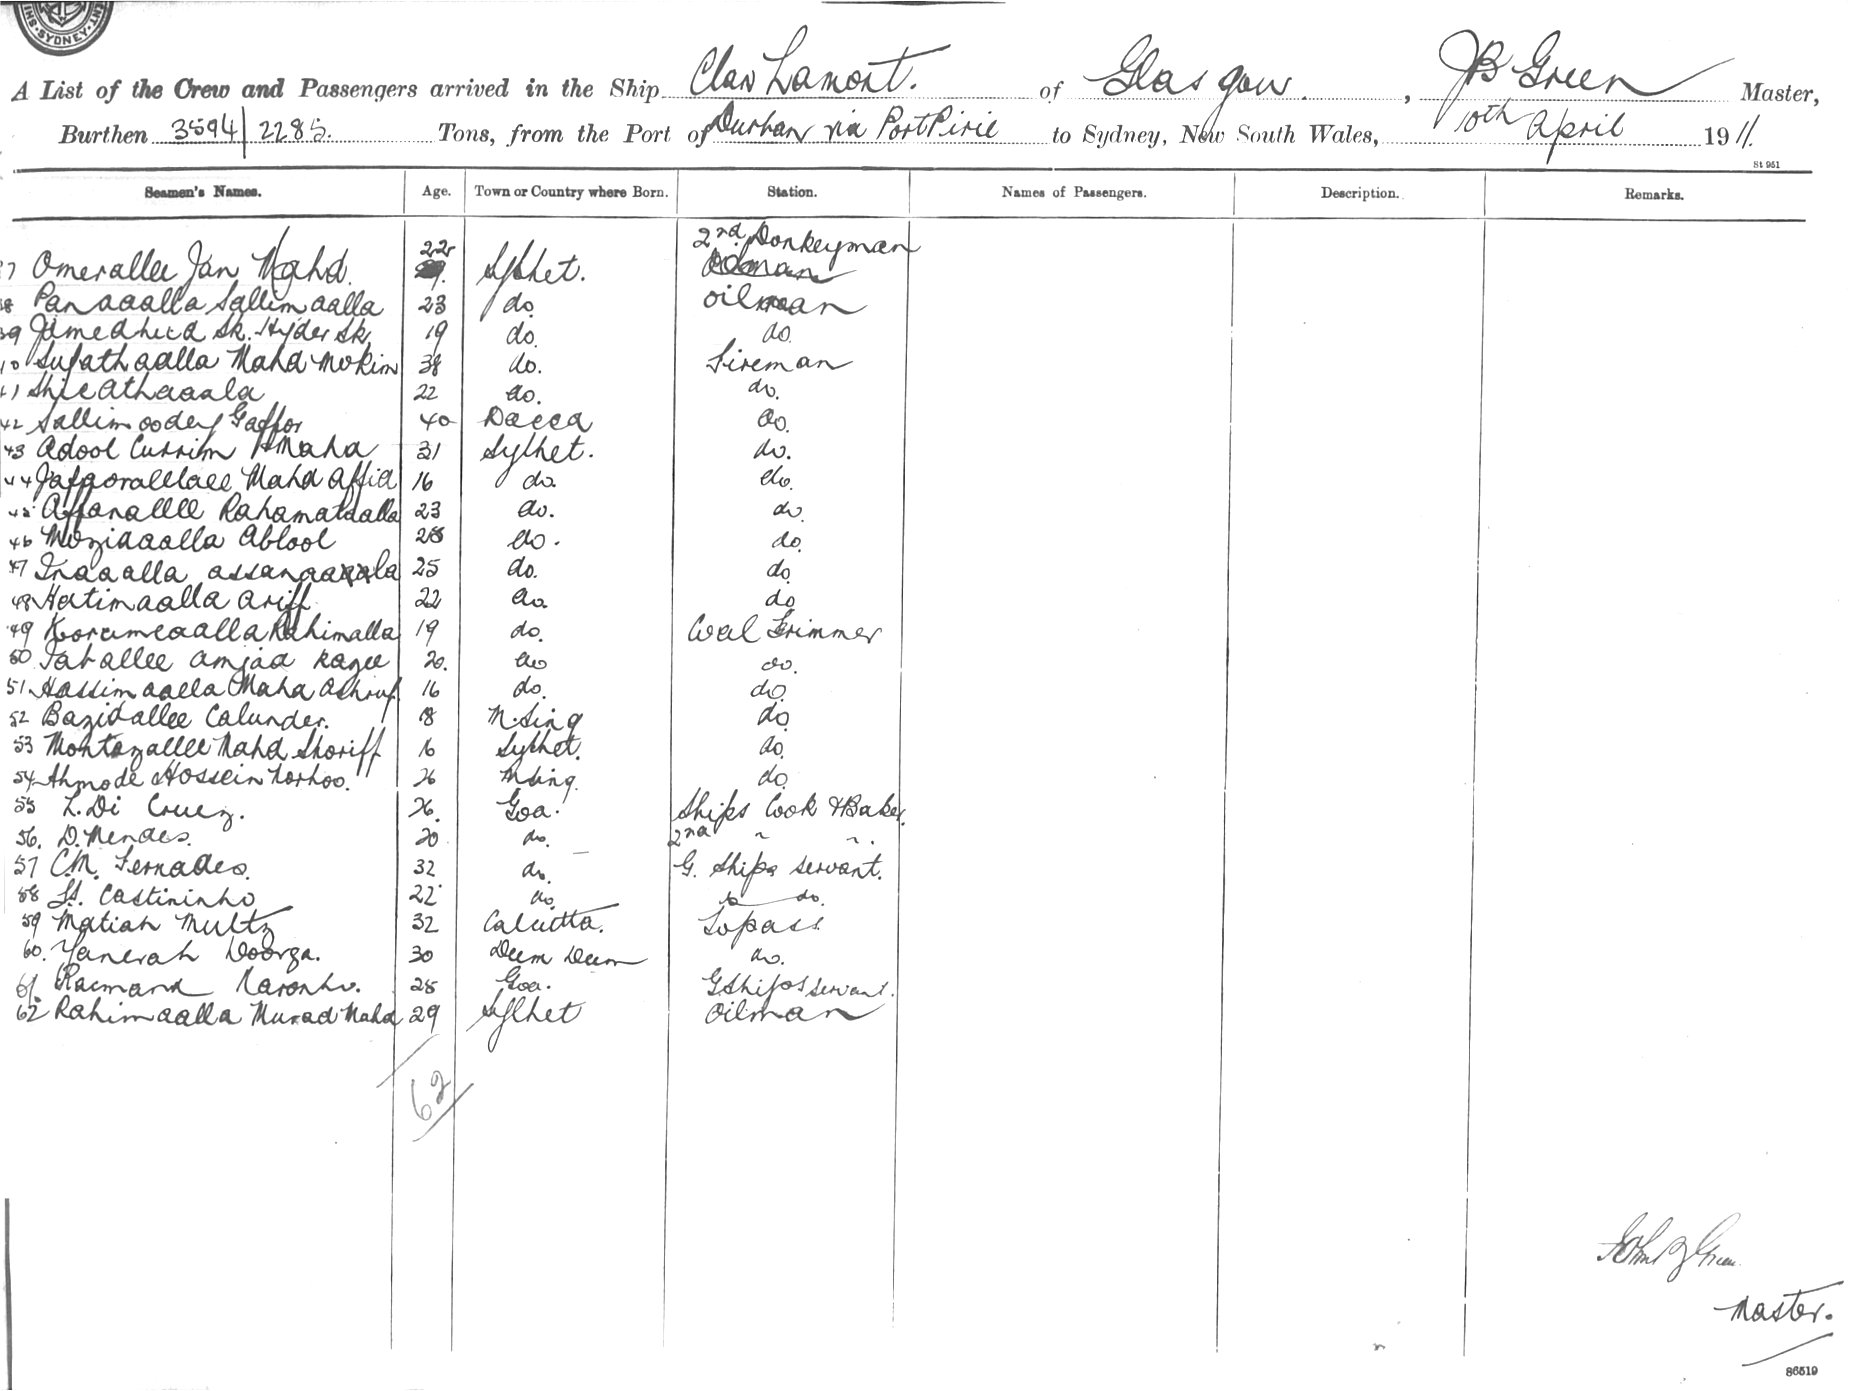 SYDNEY
A List of the Crew and Passengers arrived in the Ship Clan Lamont. of Glasgow. , JB Green Master,
Burthen 3594/2285. Tons, from the Port of Durban via Port Pirie to Sydney, New South Wales, 10th April 1911.
St 951
Seamen's Names. Age. Town or Country where Born. Station. Names of Passengers. Description. Remarks.
2nd Donkeyman
7 Omerallee Jan Mahd. 22 Sylhet.
38 Panaaalla Sallimaalla 23 do. oilman
39 Jamedheed Sk. Hyder Sk 19 do. do.
40 Sufathaalla Mahd Mokim 38 do. Fireman
41 Shieathaaala 22 do. do.
42 Sallimoodey Gaffor 40 Dacca do.
43 Adool Currim Mahd 31 Sylhet. do.
44 Jafforalllaee Mahd Affid 16 do. do.
45 Affanallee Rahamataalla 23 do. do.
46 Moziaaalla Ablool 28 do. do.
47 Inaaalla assanaaaala 25 do. do.
48 Hatimaalla Ariff 22 do. do
49 Korameaalla Rahimalla 19 do. Coal Trimmer
50 Taballee Amjad Kazee 20. do do.
51 Hassimaalla Mahd Ashruf 16 do. do.
52 Bazidallee Calunder. 18 M.Sing do.
53 Montazallee Mahd Shoriff 16 Sylhet. do.
54 Ahmode Hossein Norhoo. 26 MSing. do.
55 L. Di Cruez. 26. Goa. Ships Cook & Baker.
56. D. Mendes. 20 do. 2nd " "
57 C.M. Fernades. 32 do. G. Ships servant.
58 Castininho 22 do. do do.
59 Matiah Multz 32 Calcutta. Topass
60. Yanerah Doorga. 30 Dum Dum do.
61. Raemand Naronho. 28 Goa. G Ships servant.
62 Rahimaalla Murad Mahd 29 Sylhet Oilman
62
John B Green
Master.
86519